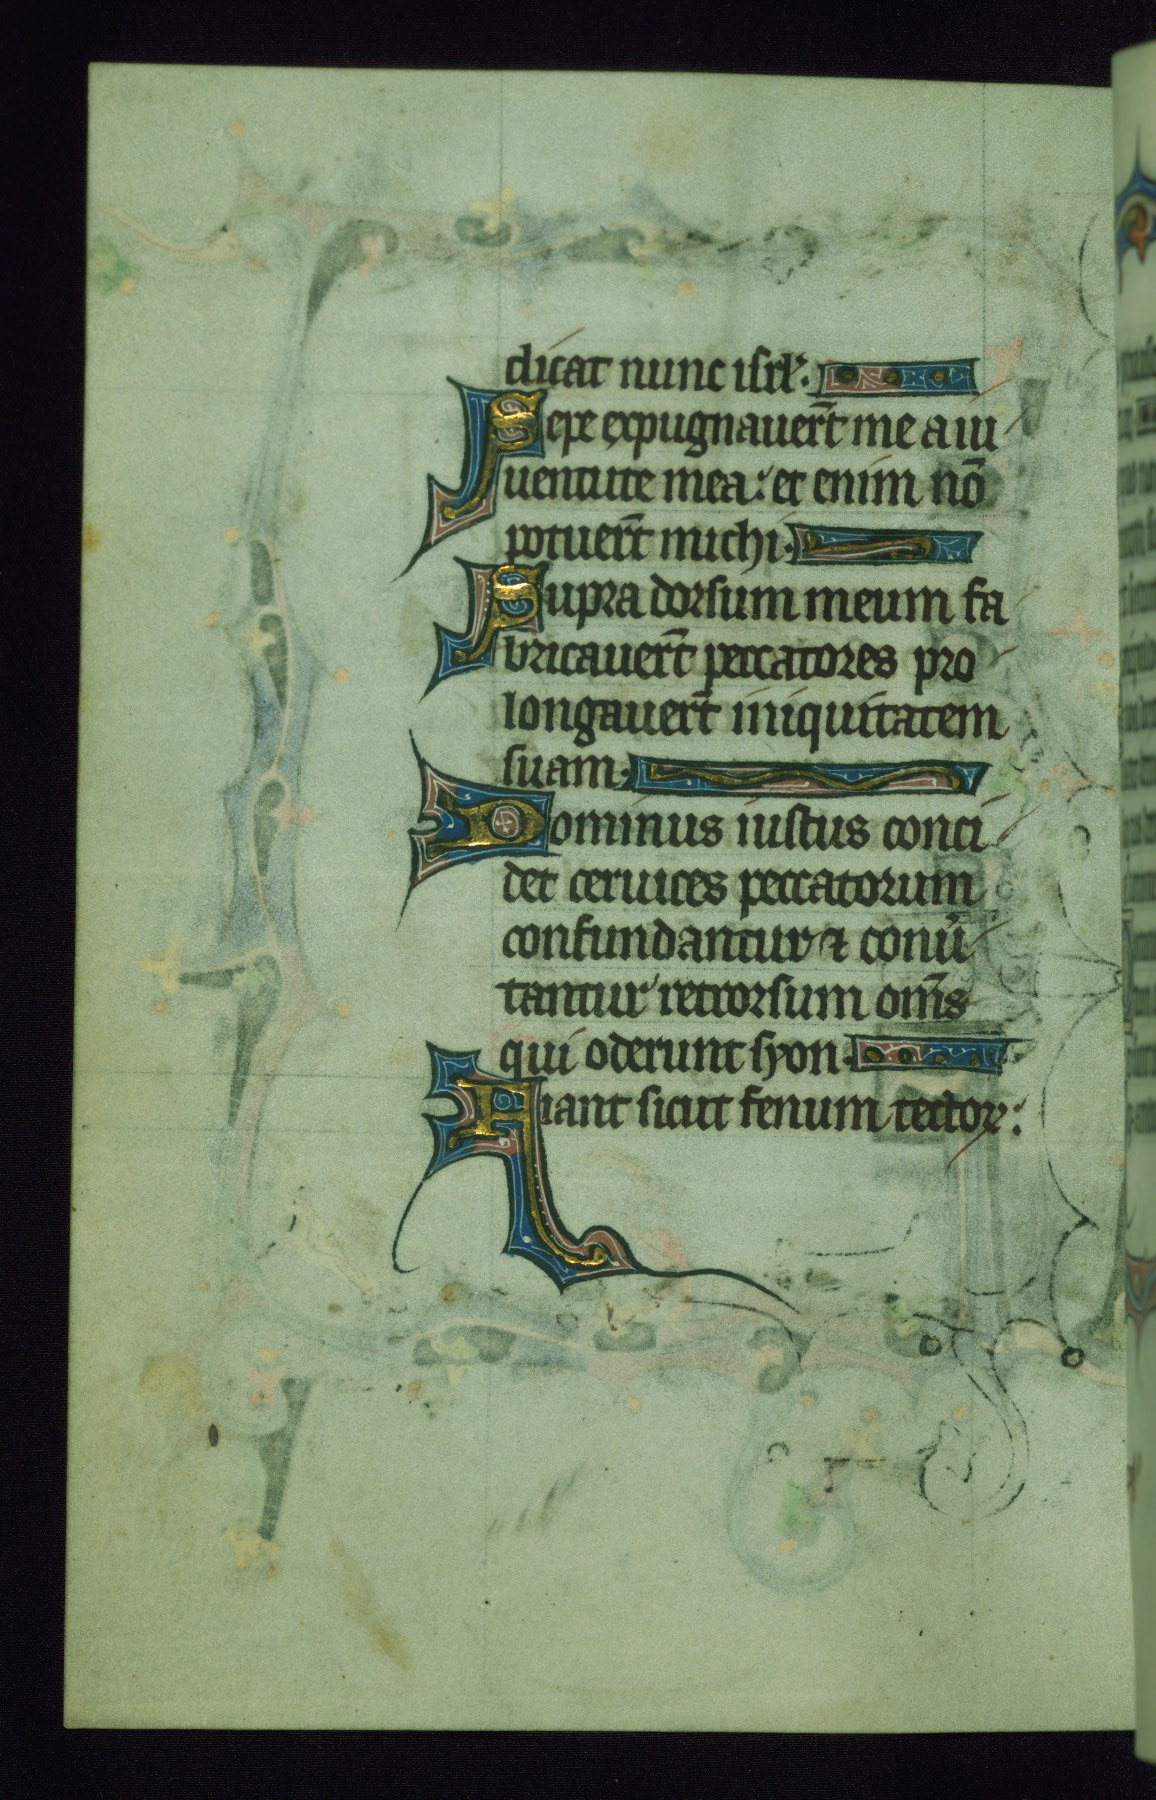 dicat nunc isrl̕.
Sepe expugnauer̄t me a iu
uentute mea: et enim nō
potuer̄t michi.
Supra dorsum meum fa
bricauer̄t peccatores pro
longauer̄t iniquitatem
suam.
Dominus iustus conci
det ceruices peccatorum
confundantur ⁊ conu̕
tantur retrorsum om̄s
qui oderunt syon.
Fiant sicut fenum tectoꝝ: